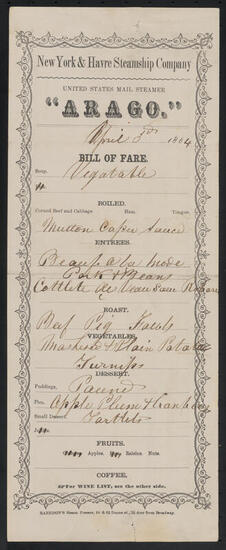 New York & Havre Steamship Company
UNITED STATES MAIL STEAMER
"ARAGO."
April 3rd 1864
BILL OF FARE.
Soup, Vegatable
BOILED.
Corned Beef and Cabbage Ham. Tongue.
Mutton Caper Sauce
ENTREES.
Beauf a la Mode
Pork & Beans
Cottlets de Veau Sauce
ROAST.
Beef Pig
VEGETABLES.
Mashed & Plain Potatoes
Turnips
DESSERT.
Puddings, Pound
Pies, Apple Plum & Cranberry
Small Dessert, Tartlets
FRUITS.
Apples. Raisins Nuts.
COFFEE.
For WINE LIST, see the other side.